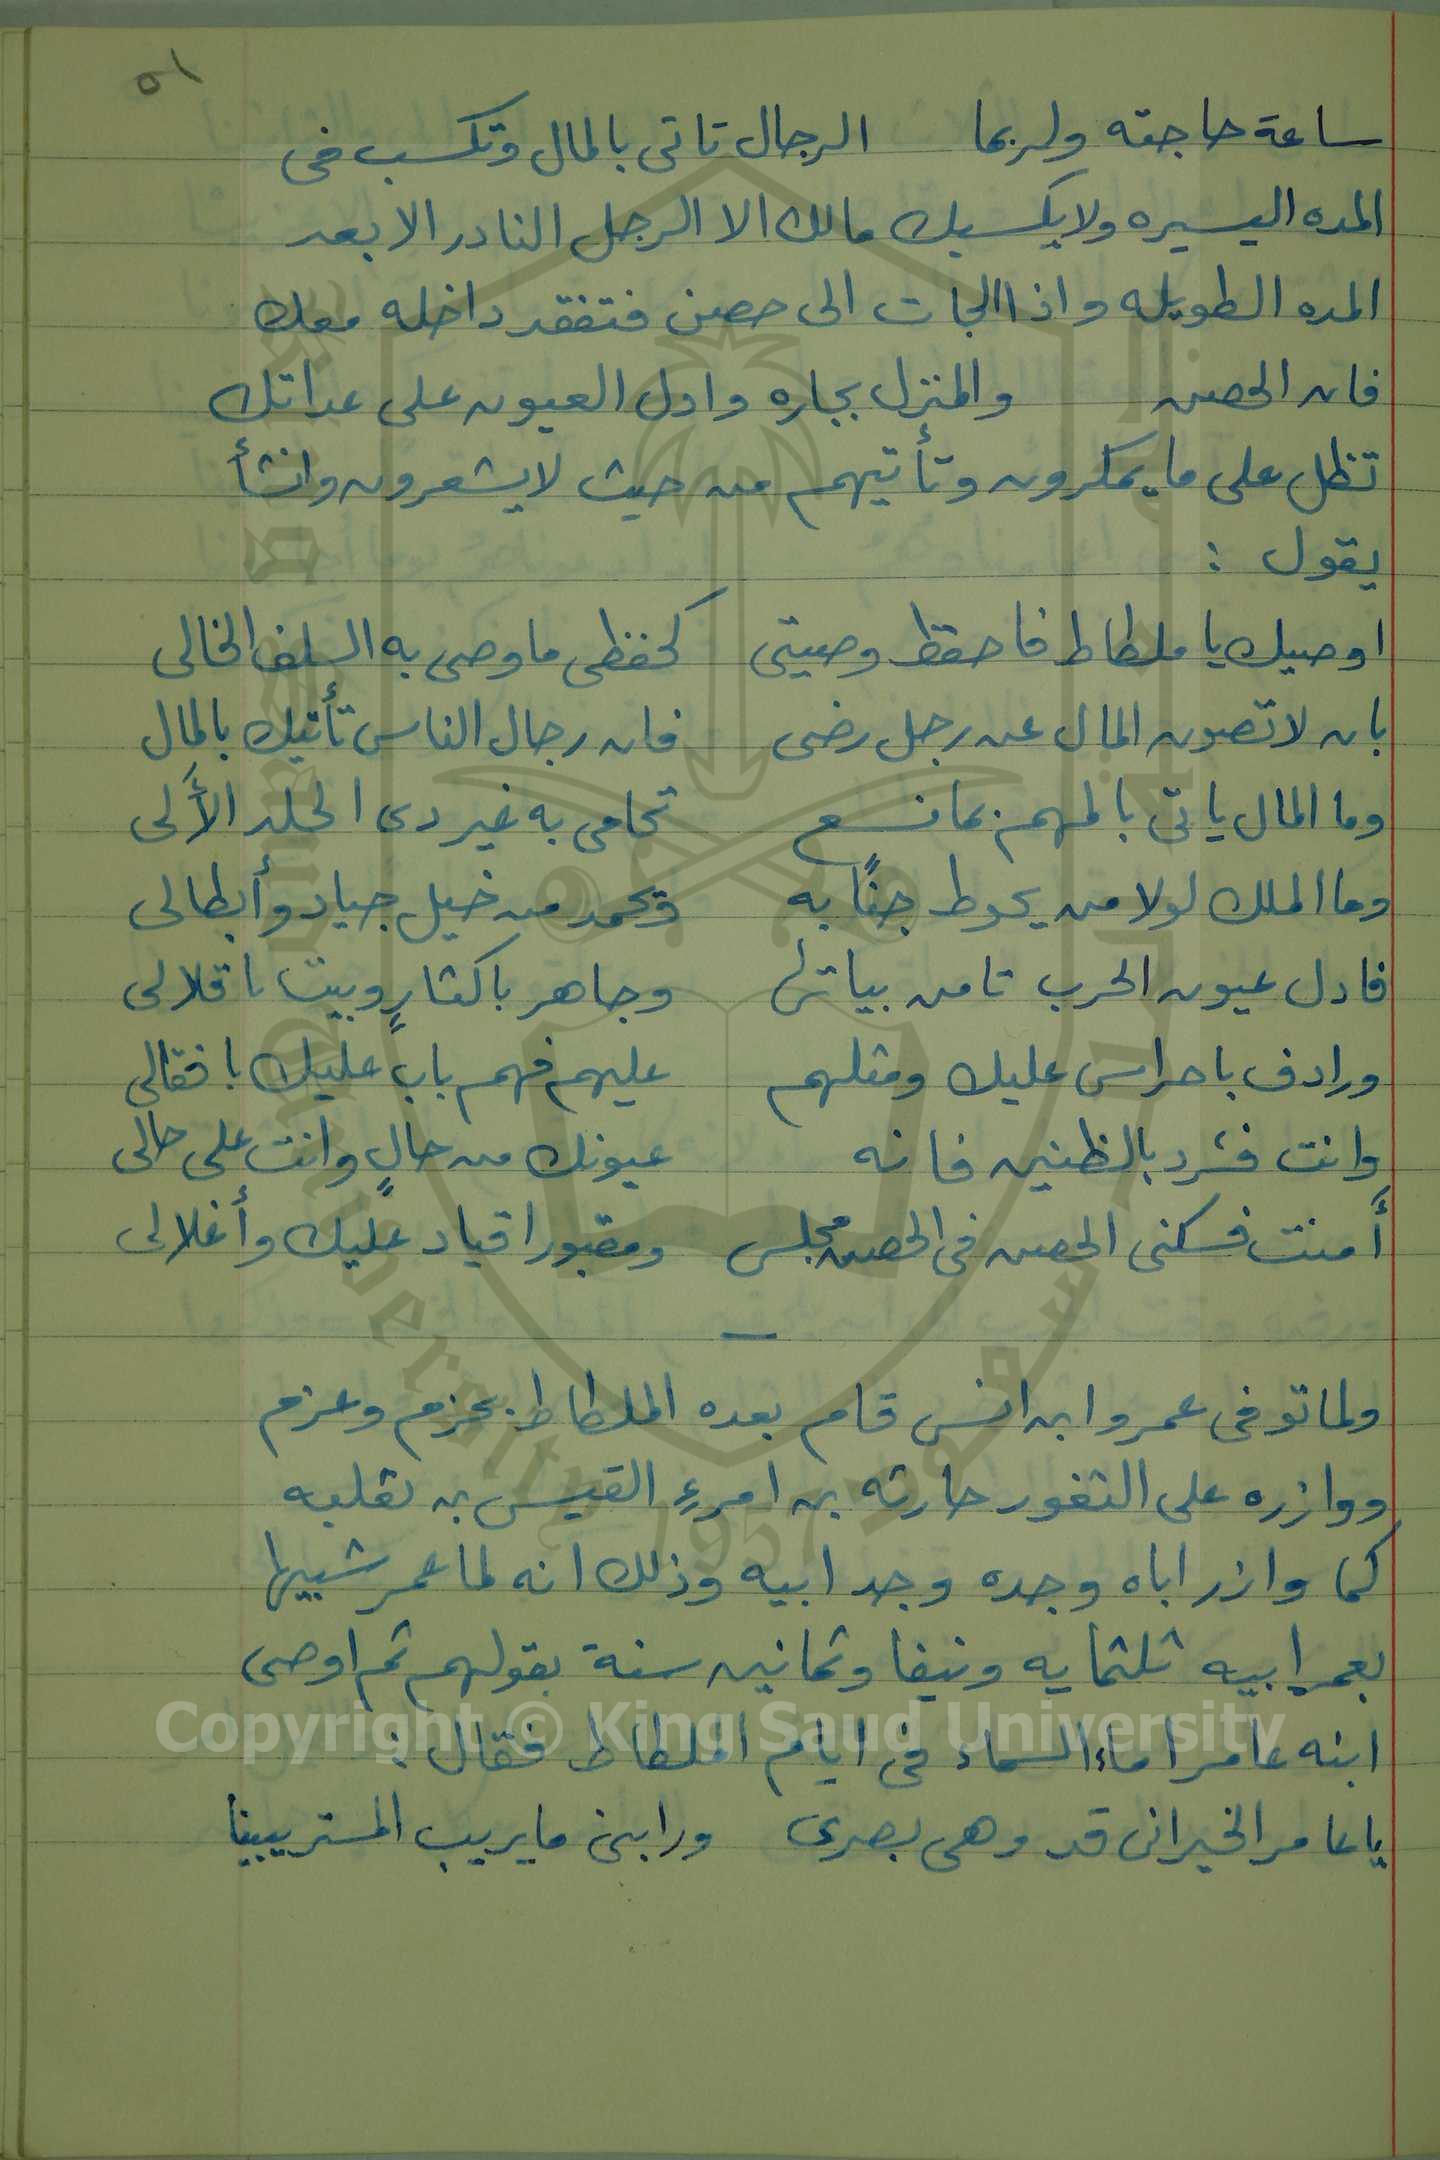 ٥١
ساعة حاجته ولربما الرجال تاتى بالمال وتكسب فى
المده اليسيره ولا يكسبك مالك الا الرجل النادر الا بعد
المده الطويله واذا الجات الى حصن فتفقد داخله معك
فان الحصن والمنزل بجاره وادل العيون على عداتك
تظل على ما يمكرون وتأتيهم من حيث لا يشعرون وانشأ
يقول :
اوصيك يا ملطاط فاحفظ وصيتى كحفظى ما وصى به السلف الخالى
بان لا تصون المال عن رجل رضى فان رجال الناس تأتيك بالمال
وما المال ياتى بالمهم بمانع تحامى به غير دى الجلد الألى
وما الملك لولا من يحوط جنًا به وتحمد من خيل جياد وأبطالى
فادل عيون الحرب تامن بياتها وجاهر باكثارٍ وبيت باقلالى
ورادف باحراس عليك ومثلهم عليهم فهم باب عليك باقفالى
وانت فشرد بالظنين فانه عيونك من حالٍ وانت على حالى
أمنت فسكنى الحصن فى الحصن مجلس ومقبورا قياد عليك وأغلالى
ولما توفى عمرو ابن انس قام بعده الملطاط بحزم وعزم
ووازره على الثغور حارثه بن امرءِ القيس بن ثعلبه
كما وازر اباه وجده وجد ابيه وذلك انه لما عمر شبيها
بعمر ابيه ثلثمايه ونيفا وثمانين سنة بقولهم ثم اوصى
ابنه عامرا ماء السماء فى ايام الملطاط فقال :
يا عامر الخير انى قد وهى بصرى ورابنى ما يريب المستريبينا
Copyright © King Saud University
King Saud University 1957